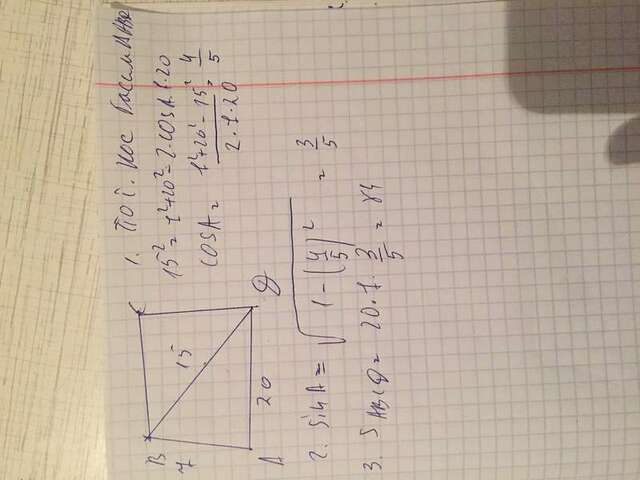 B C
7 15
A 20 D
1. ПО Т. кос
15² = 7²+20² - 2·cosA·7·20
cosA = \frac{7²+20² - 15²}{2·7·20} = \frac{4}{5}
2. sinA = \sqrt{1 - (\frac{4}{5})²} = \frac{3}{5}
3. S ABCD = 20·7·\frac{3}{5} = 84